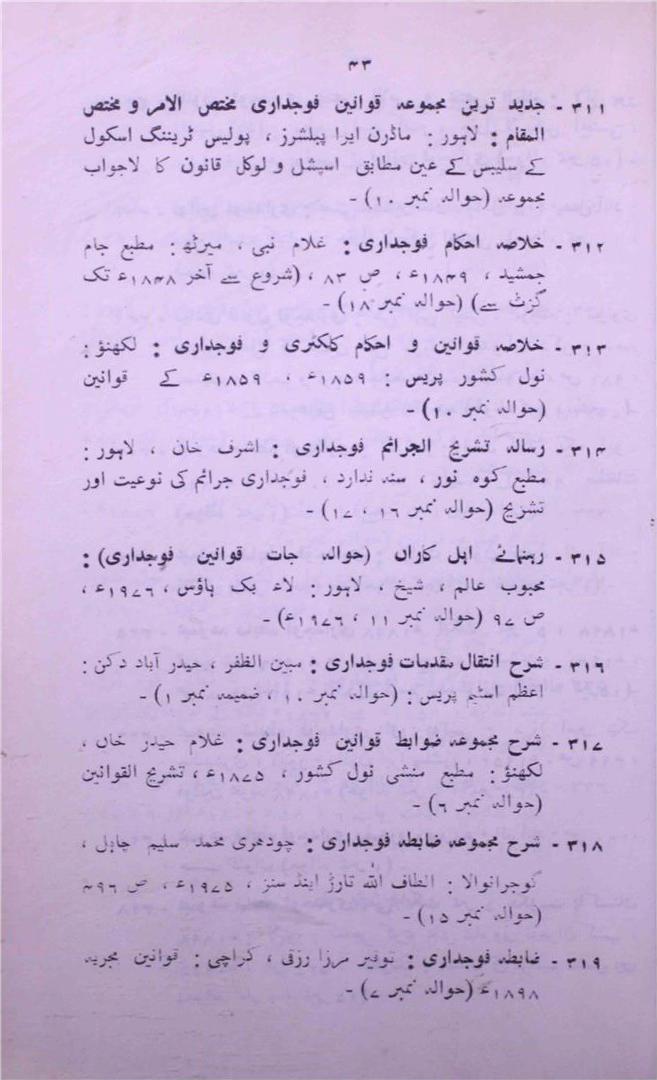 ۴۳
۳۱۱ - جدید ترین مجموعہ قوانین فوجداری مختص الامر و مختص
المقام : لاہور : ماڈرن ایرا پبلشرز ، پولیس ٹریننگ اسکول
کے سلیبس کے عین مطابق اسپشل و لوکل قانون کا لاجواب
مجموعہ (حوالہ نمبر ۱۰) -
۳۱۲ - خلاصہ احکام فوجداری : غلام نبی ، میرٹھ : مطبع جام
جمشید ، ۱۸۴۹ء ، ص ۸۳ ، (شروع سے آخر ۱۸۴۸ء تک
گزٹ سے) (حوالہ نمبر ۱۸) -
۳۱۳ - خلاصہ قوانین و احکام کلکٹری و فوجداری : لکھنؤ :
نول کشور پریس : ۱۸۵۹ء ، ۱۸۵۹ء کے قوانین
(حوالہ نمبر ۱۰) -
۳۱۴ - رسالہ تشریح الجرائم فوجداری : اشرف خان ، لاہور :
مطبع کوہ نور ، سنہ ندارد ، فوجداری جرائم کی نوعیت اور
تشریح (حوالہ نمبر ۱۶ ، ۱۷) -
۳۱۵ - رہنمائے اہل کاراں (حوالہ جات قوانین فوجداری) :
محبوب عالم ، شیخ ، لاہور : لاء بک ہاؤس ، ۱۹۷۶ء ،
ص ۹۷ (حوالہ نمبر ۱۱ ، ۱۹۷۶ء) -
۳۱۶ - شرح انتقال مقدمات فوجداری : مبین الظفر ، حیدر آباد دکن :
اعظم اسٹیم پریس : (حوالہ نمبر ۱۰ ، ضمیمہ نمبر ۱) -
۳۱۷ - شرح مجموعہ ضوابط قوانین فوجداری : غلام حیدر خاں ،
لکھنؤ : مطبع منشی نول کشور ، ۱۸۷۵ء ، تشریح القوانین
(حوالہ نمبر ۶) -
۳۱۸ - شرح مجموعہ ضابطہ فوجداری : چودھری محمد سلیم چاہل ،
گوجرانوالا : الطاف اللہ تارڑ اینڈ سنز ، ۱۹۷۵ء ، ص ۴۹۶
(حوالہ نمبر ۱۵) -
۳۱۹ - ضابطہ فوجداری : توقیر مرزا رزقی ، کراچی : قوانین مجریہ
۱۸۹۸ء (حوالہ نمبر ۷) -